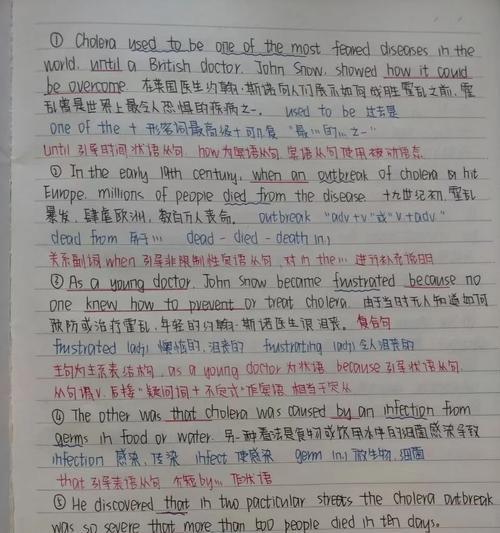 ① Cholera used to be one of the most feared diseases in the
world, until a British doctor, John Snow, showed how it could
be overcome. 在英国医生约翰·斯诺向人们展示如何战胜霍乱之前,霍
乱曾是世界上最令人恐惧的疾病之一. used to be 过去是
one of the + 形容词最高级+可n复 "最…的…之一"
until 引导时间状语从句, how为宾语从句, 宾语从句使用被动语态
② In the early 19th century, when an outbreak of cholera hit
Europe, millions of people died from the disease. 十九世纪初,霍乱
暴发,肆虐欧洲,数百万人丧命. outbreak "adv+v"或"v+adv"
dead from 死于… dead - died - death [n.]
关系副词 when 引导非限制性定语从句, 对 in the… 进行补充说明
② As a young doctor, John Snow became frustrated because no
one knew how to prevent or treat cholera. 由于当时无人知道如何
预防或治疗霍乱,年轻的约翰·斯诺医生很沮丧. 复合句
frustrated [adj] 懊恼的,沮丧的 frustrating [adj] 令人沮丧的
主句为主系表结构, as a young doctor 为状语 because 引导状语从句,
从句谓v. 后接"疑问词+不定式"作宾语 相当于宾从
④ The other was that cholera was caused by an infection from
germs in food or water. 另一种看法是食物或饮用水中的细菌感染导致
infection 感染,传染 infect 使感染 germ [n.] 微生物,细菌
that 引导表语从句 by… 作状语
⑤ He discovered that in two particular streets the cholera outbreak
was so severe that more than 500 people died in ten days.